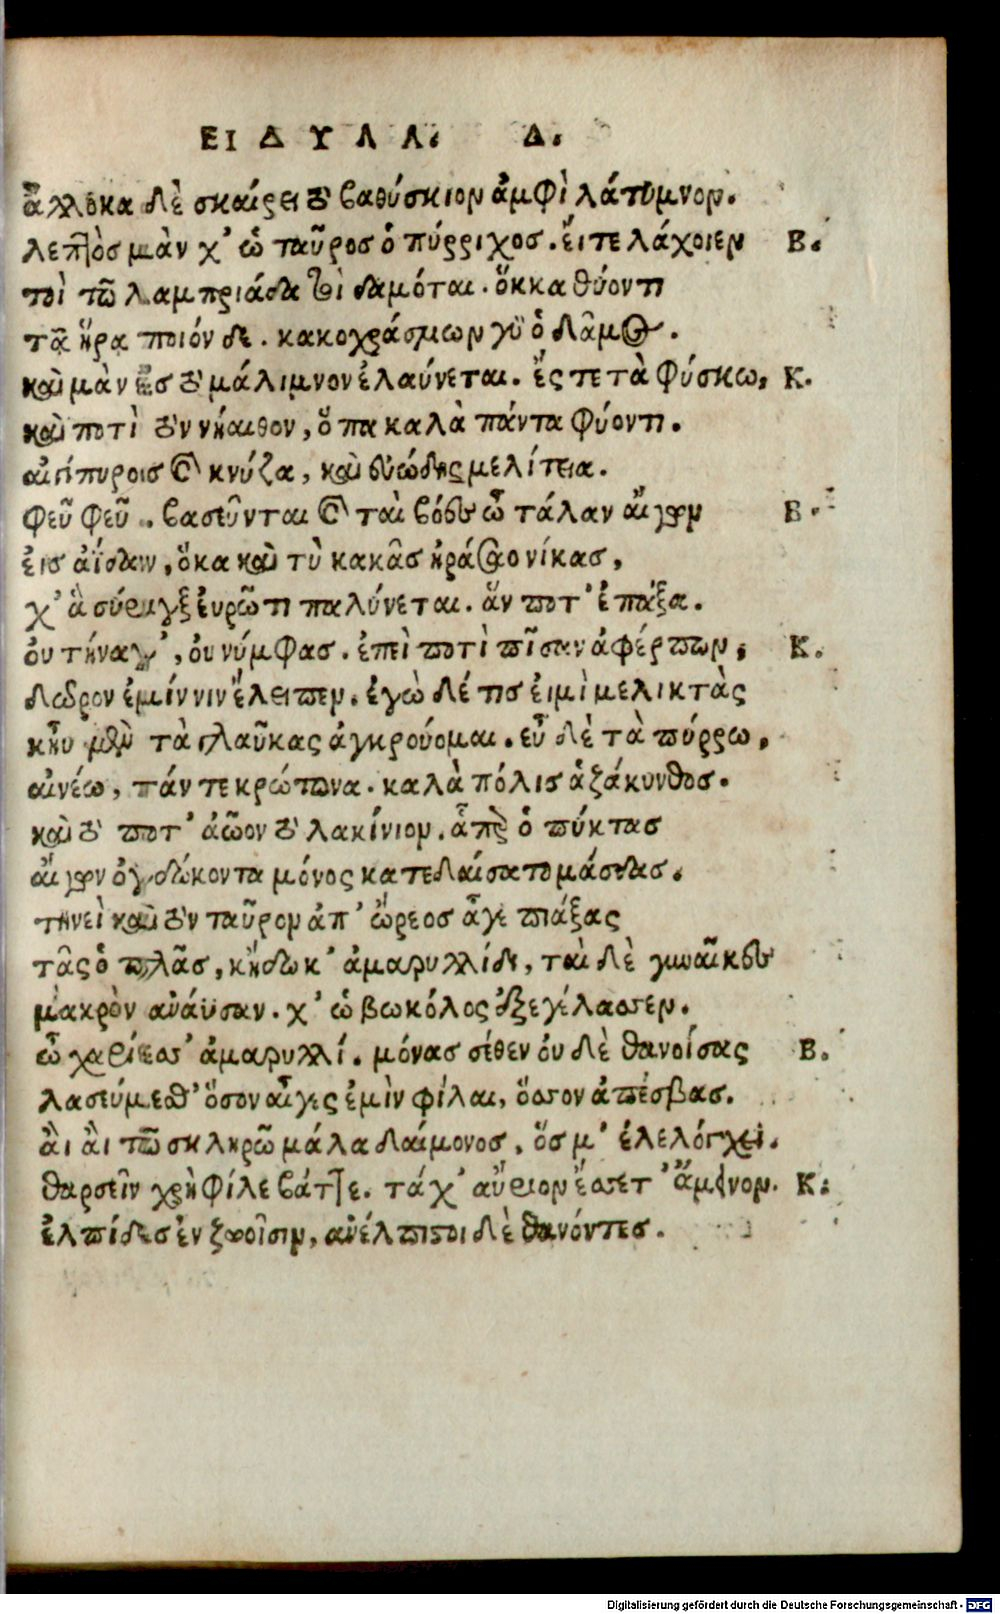 ΕΙΔΥΛΛ. Δ.
ἄλλοκα δὲ σκαίρει τὸ βαθύσκιον ἀμφὶ λάτυμνον.
λεπτὸς μὰν χ' ὡ ταῦρος ὁ πύρριχος. εἴτε λάχοιεν Β.
τοὶ τῶ λαμπριάδα τοὶ δαμόται. ὅκκα θύοντι
τᾷ ἥρᾳ ποιόν δε. κακοχράσμων γὰρ ὁ δᾶμος.
καὶ μὰν ἐς τὸ μάλιμνον ἐλαύνεται. ἔς τε τὰ φύσκω, Κ.
καὶ ποτὶ τὸν νήαιθον, ὅπα καλὰ πάντα φύοντι.
αἰγίπυροις καὶ κνύζα, καὶ εὐώδης μελίτεια.
φεῦ φεῦ. βασεῦνται καὶ ταὶ βόες ὦ τάλαν αἴγων Β.
εἰς ἀΐδαν, ὅκα καὶ τὺ κακᾶς ἠράσαο νίκας,
χ' ἁ σύριγξ εὐρῶτι παλύνεται. ἅν ποτ' ἐπάξα.
οὐ τήνα γ', οὐ νύμφας. ἐπεὶ ποτὶ πῖσαν ἀφέρπων, Κ.
δῶρον ἐμίν νιν ἔλειπεν. ἐγὼ δέ τις εἰμὶ μελικτὰς
κἢυ μὲν τὰ γλαῦκας ἀγκρούομαι. εὖ δὲ τὰ πύρρω,
αἰνέω, τάν τε κρώτωνα. καλὰ πόλις ἁ ζάκυνθος.
καὶ τὸ ποτ' ἀῶον τὸ λακίνιον. ᾇπερ ὁ πύκτας
αἴγων ὀγδώκοντα μόνος κατεδαίσατο μάσδας.
τηνεὶ καὶ τὸν ταῦρον ἀπ' ὤρεος ἆγε πιάξας
τᾶς ὁπλᾶς, κἤδωκ' ἀμαρυλλίδι, ταὶ δὲ γυναῖκες
μακρὸν ἀνάϋσαν. χ' ὡ βωκόλος ἐξεγέλασσεν.
ὦ χαρίεσσ' ἀμαρυλλί. μόνας σέθεν οὐ δὲ θανοίσας Β.
λασεύμεσθ' ὅσον αἶγες ἐμὶν φίλαι, ὅσσον ἀπέσβας.
ἂι ἂι τῶ σκληρῶ μάλα δαίμονος, ὅς μ' ἐλελόγχει.
θαρσεῖν χρὴ φίλε βάττε. τάχ' αὔριον ἔσσετ' ἄμεινον. Κ.
ἐλπίδες ἐν ζωοῖσιν, ἀνέλπιστοι δὲ θανόντες.
Digitalisierung gefördert durch die Deutsche Forschungsgemeinschaft - DFG